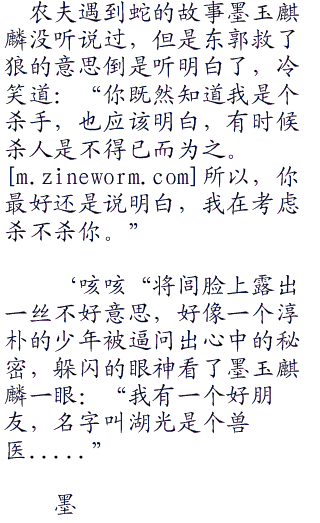 农夫遇到蛇的故事墨玉麒
麟没听说过，但是东郭救了
狼的意思倒是听明白了，冷
笑道：“你既然知道我是个
杀手，也应该明白，有时候
杀人是不得已而为之。
[m.zineworm.com]所以，你
最好还是说明白，我在考虑
杀不杀你。”
‘咳咳“将闾脸上露出
一丝不好意思，好像一个淳
朴的少年被逼问出心中的秘
密，躲闪的眼神看了墨玉麒
麟一眼：“我有一个好朋
友，名字叫湖光是个兽
医.....”
墨